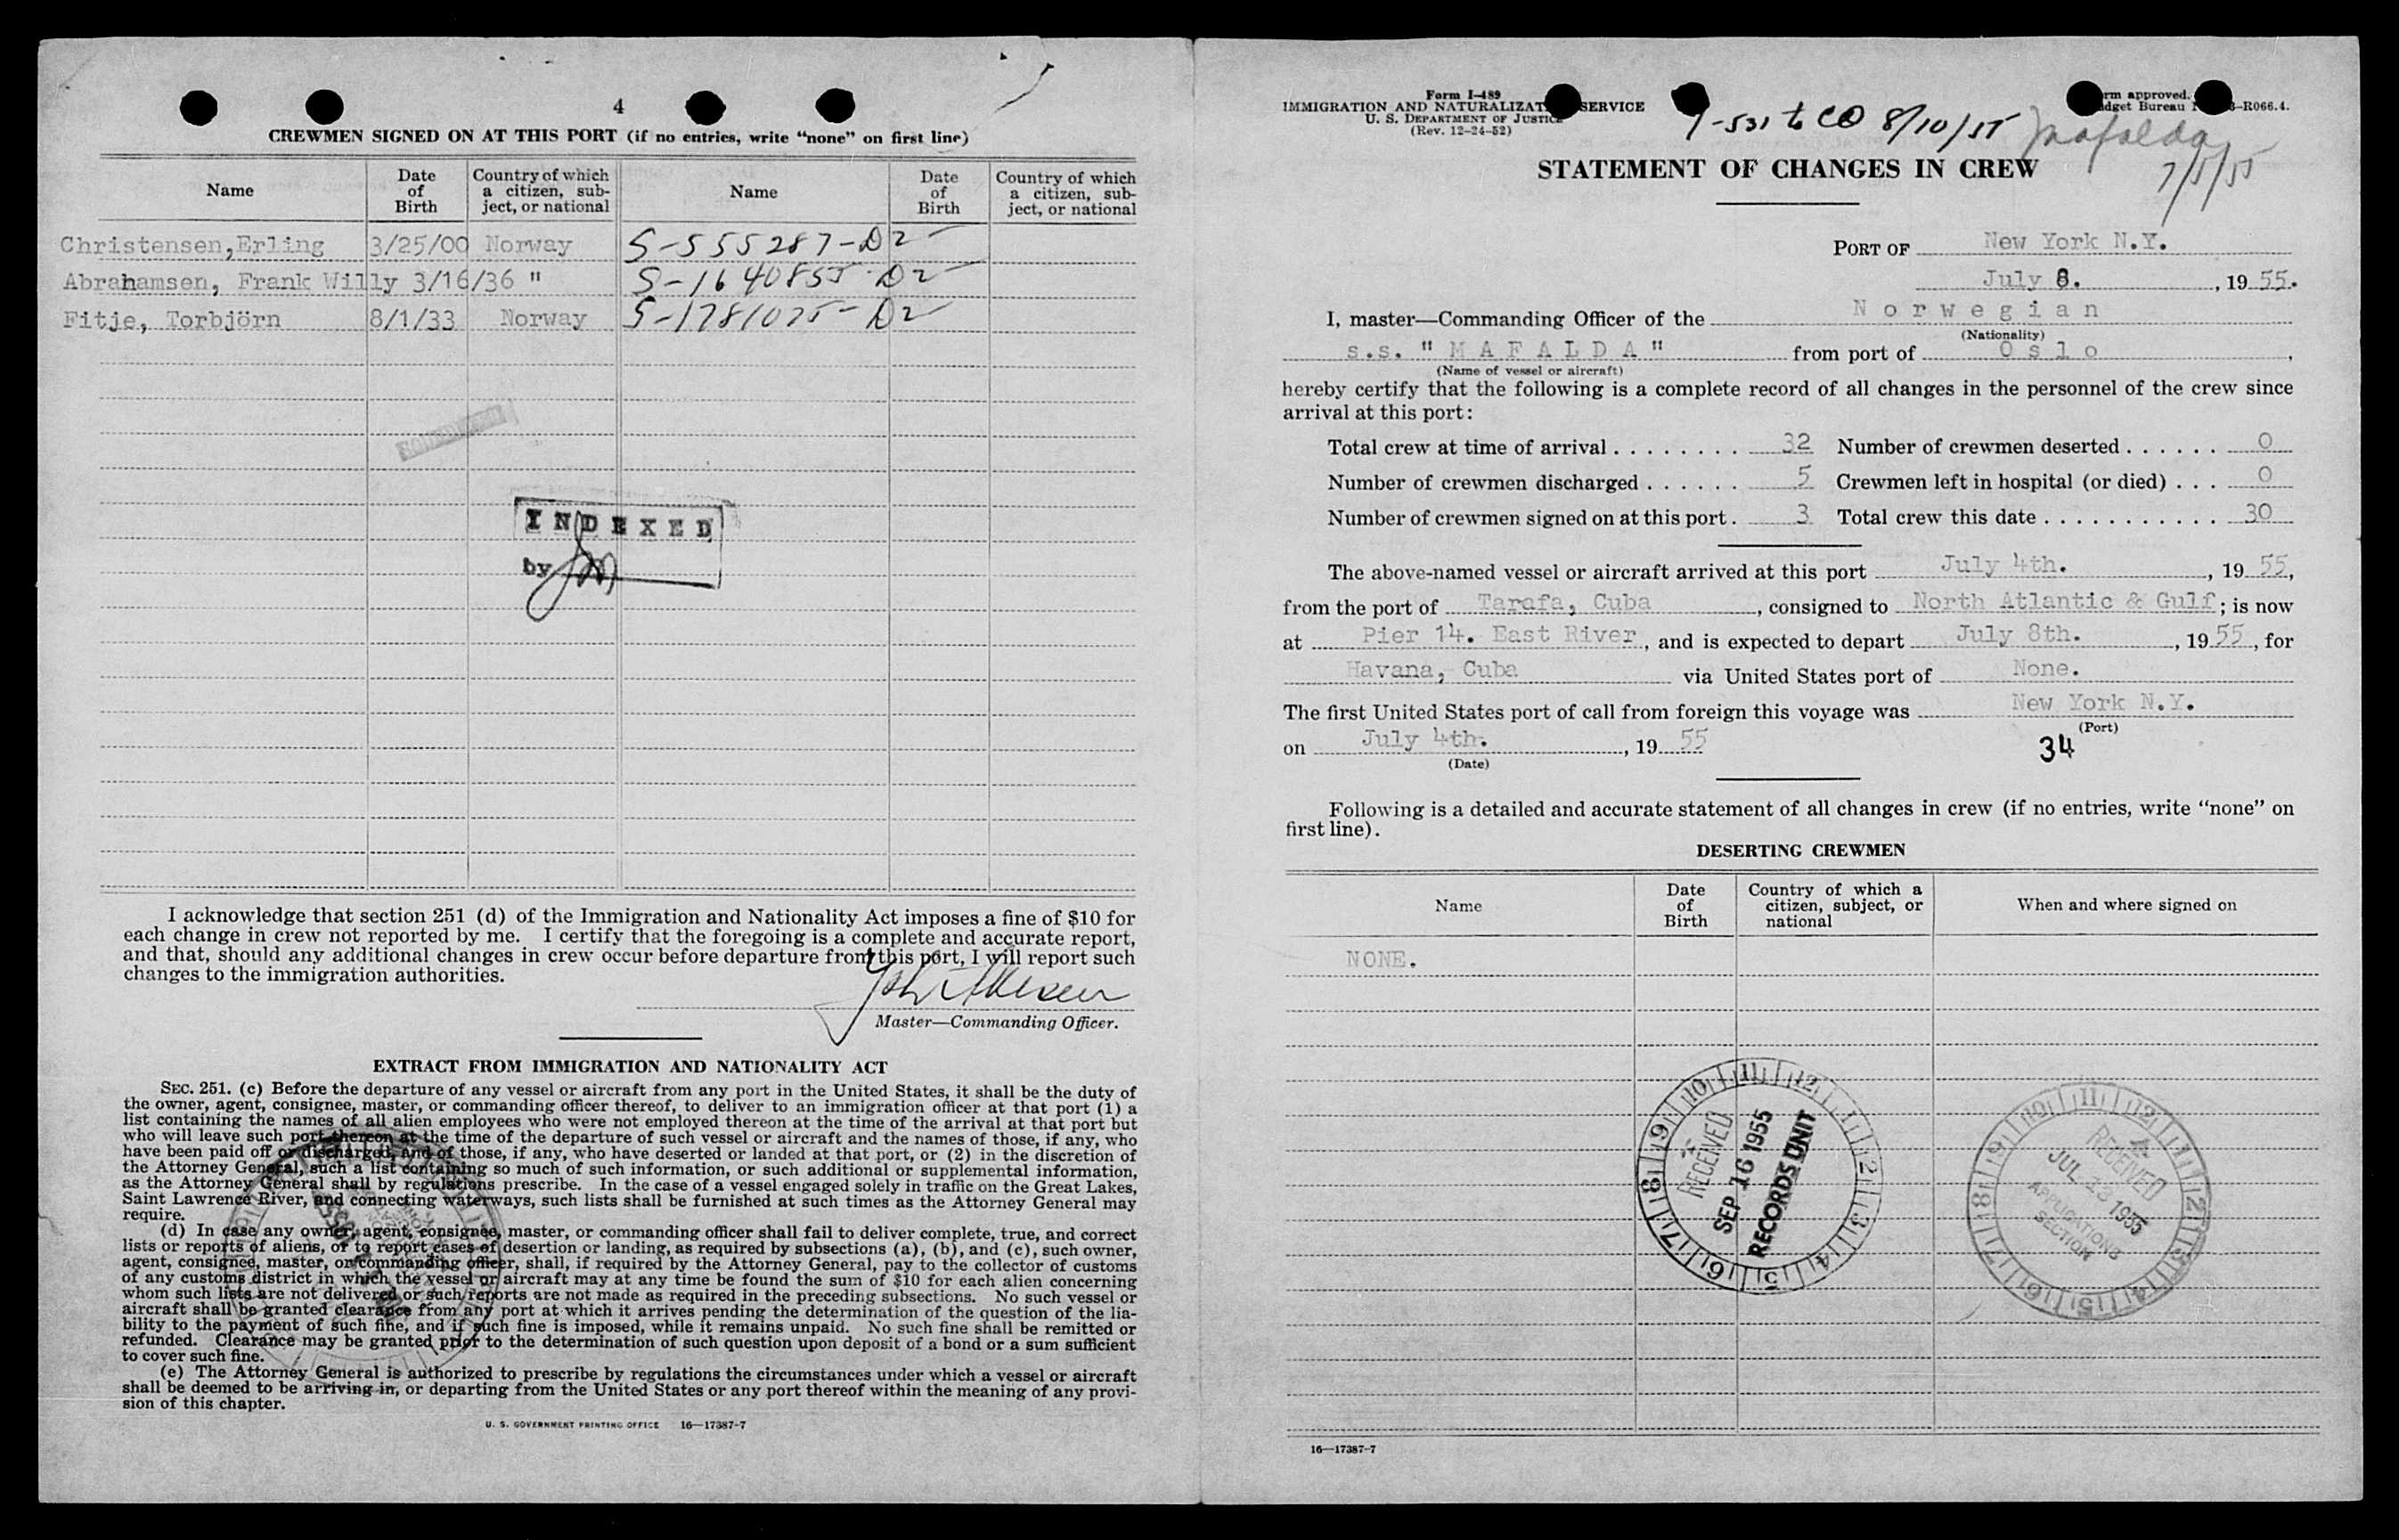 4
CREWMEN SIGNED ON AT THIS PORT (if no entries, write “none” on first line)
Name
Date of Birth
Country of which a citizen, sub-ject, or national
Name
Date of Birth
Country of which a citizen, sub-ject, or national
Christensen, Erling 3/25/00 Norway S-555287-D2
Abrahamsen, Frank Willy 3/16/36 " S-1640855-D2
Fitje, Torbjörn 8/1/33 Norway S-1781075-D2
INDEXED
by
I acknowledge that section 251 (d) of the Immigration and Nationality Act imposes a fine of $10 for
each change in crew not reported by me. I certify that the foregoing is a complete and accurate report,
and that, should any additional changes in crew occur before departure from this port, I will report such
changes to the immigration authorities.
Master—Commanding Officer.
EXTRACT FROM IMMIGRATION AND NATIONALITY ACT
SEC. 251. (c) Before the departure of any vessel or aircraft from any port in the United States, it shall be the duty of
the owner, agent, consignee, master, or commanding officer thereof, to deliver to an immigration officer at that port (1) a
list containing the names of all alien employees who were not employed thereon at the time of the arrival at that port but
who will leave such port thereon at the time of the departure of such vessel or aircraft and the names of those, if any, who
have been paid off or discharged, and of those, if any, who have deserted or landed at that port, or (2) in the discretion of
the Attorney General, such a list containing so much of such information, or such additional or supplemental information,
as the Attorney General shall by regulations prescribe. In the case of a vessel engaged solely in traffic on the Great Lakes,
Saint Lawrence River, and connecting waterways, such lists shall be furnished at such times as the Attorney General may
require.
(d) In case any owner, agent, consignee, master, or commanding officer shall fail to deliver complete, true, and correct
lists or reports of aliens, or to report cases of desertion or landing, as required by subsections (a), (b), and (c), such owner,
agent, consignee, master, or commanding officer, shall, if required by the Attorney General, pay to the collector of customs
of any customs district in which the vessel or aircraft may at any time be found the sum of $10 for each alien concerning
whom such lists are not delivered or such reports are not made as required in the preceding subsections. No such vessel or
aircraft shall be granted clearance from any port at which it arrives pending the determination of the question of the lia-
bility to the payment of such fine, and if such fine is imposed, while it remains unpaid. No such fine shall be remitted or
refunded. Clearance may be granted prior to the determination of such question upon deposit of a bond or a sum sufficient
to cover such fine.
(e) The Attorney General is authorized to prescribe by regulations the circumstances under which a vessel or aircraft
shall be deemed to be arriving in, or departing from the United States or any port thereof within the meaning of any provi-
sion of this chapter.
U. S. GOVERNMENT PRINTING OFFICE 16—17387-7
Form I-489
IMMIGRATION AND NATURALIZAT SERVICE
U. S. DEPARTMENT OF JUSTICE
(Rev. 12-24-52)
rm approved.
dget Bureau -R066.4.
-531 to CO 8/10/55
Mafalda
7/5/55
STATEMENT OF CHANGES IN CREW
PORT OF New York N.Y.
July 8. , 19 55.
I, master—Commanding Officer of the Norwegian
(Nationality)
s.s. " MAFALDA " from port of Oslo ,
(Name of vessel or aircraft)
hereby certify that the following is a complete record of all changes in the personnel of the crew since
arrival at this port:
Total crew at time of arrival . . . . . . . . 32 Number of crewmen deserted . . . . . . 0
Number of crewmen discharged . . . . . . 5 Crewmen left in hospital (or died) . . . 0
Number of crewmen signed on at this port . 3 Total crew this date . . . . . . . . . . . 30
The above-named vessel or aircraft arrived at this port July 4th. , 19 55,
from the port of Tarafa, Cuba , consigned to North Atlantic & Gulf ; is now
at Pier 14. East River , and is expected to depart July 8th. , 19 55 , for
Havana, Cuba via United States port of None.
The first United States port of call from foreign this voyage was New York N.Y.
(Port)
on July 4th. , 19 55
(Date)
34
Following is a detailed and accurate statement of all changes in crew (if no entries, write “none” on
first line).
DESERTING CREWMEN
Name
Date of Birth
Country of which a citizen, subject, or national
When and where signed on
NONE.
10 11 12 1 2 3 4 5 6 7 8 9
RECEIVED
SEP 16 1955
RECORDS UNIT
10 11 12 1 2 3 4 5 6 7 8 9
RECEIVED
JUL 1955
APPLICATIONS
SECTION
16—17387-7